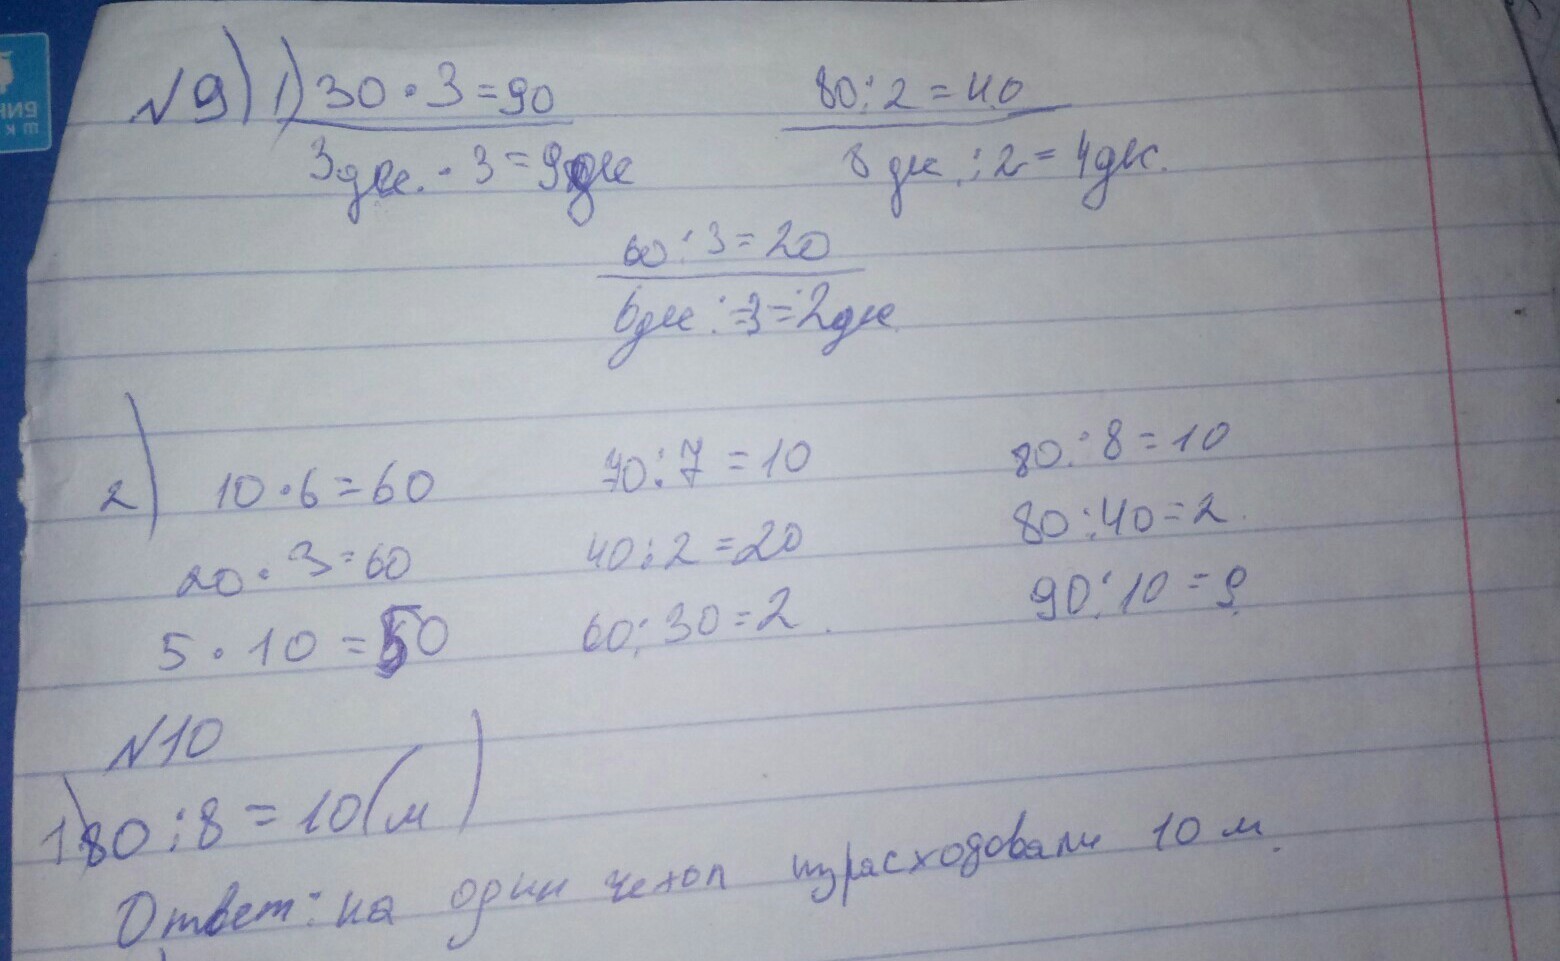 №9) 1) 30 · 3 = 90 80 : 2 = 40
3 дес. · 3 = 9 дес 8 дес. : 2 = 4 дес.
60 : 3 = 20
6 дес : 3 = 2 дес
2) 10 · 6 = 60 70 : 7 = 10 80 : 8 = 10
20 · 3 = 60 40 : 2 = 20 80 : 40 = 2
5 · 10 = 50 60 : 30 = 2 90 : 10 = 9
№10
1) 80 : 8 = 10 (м)
Ответ: на один чехол израсходовали 10 м.